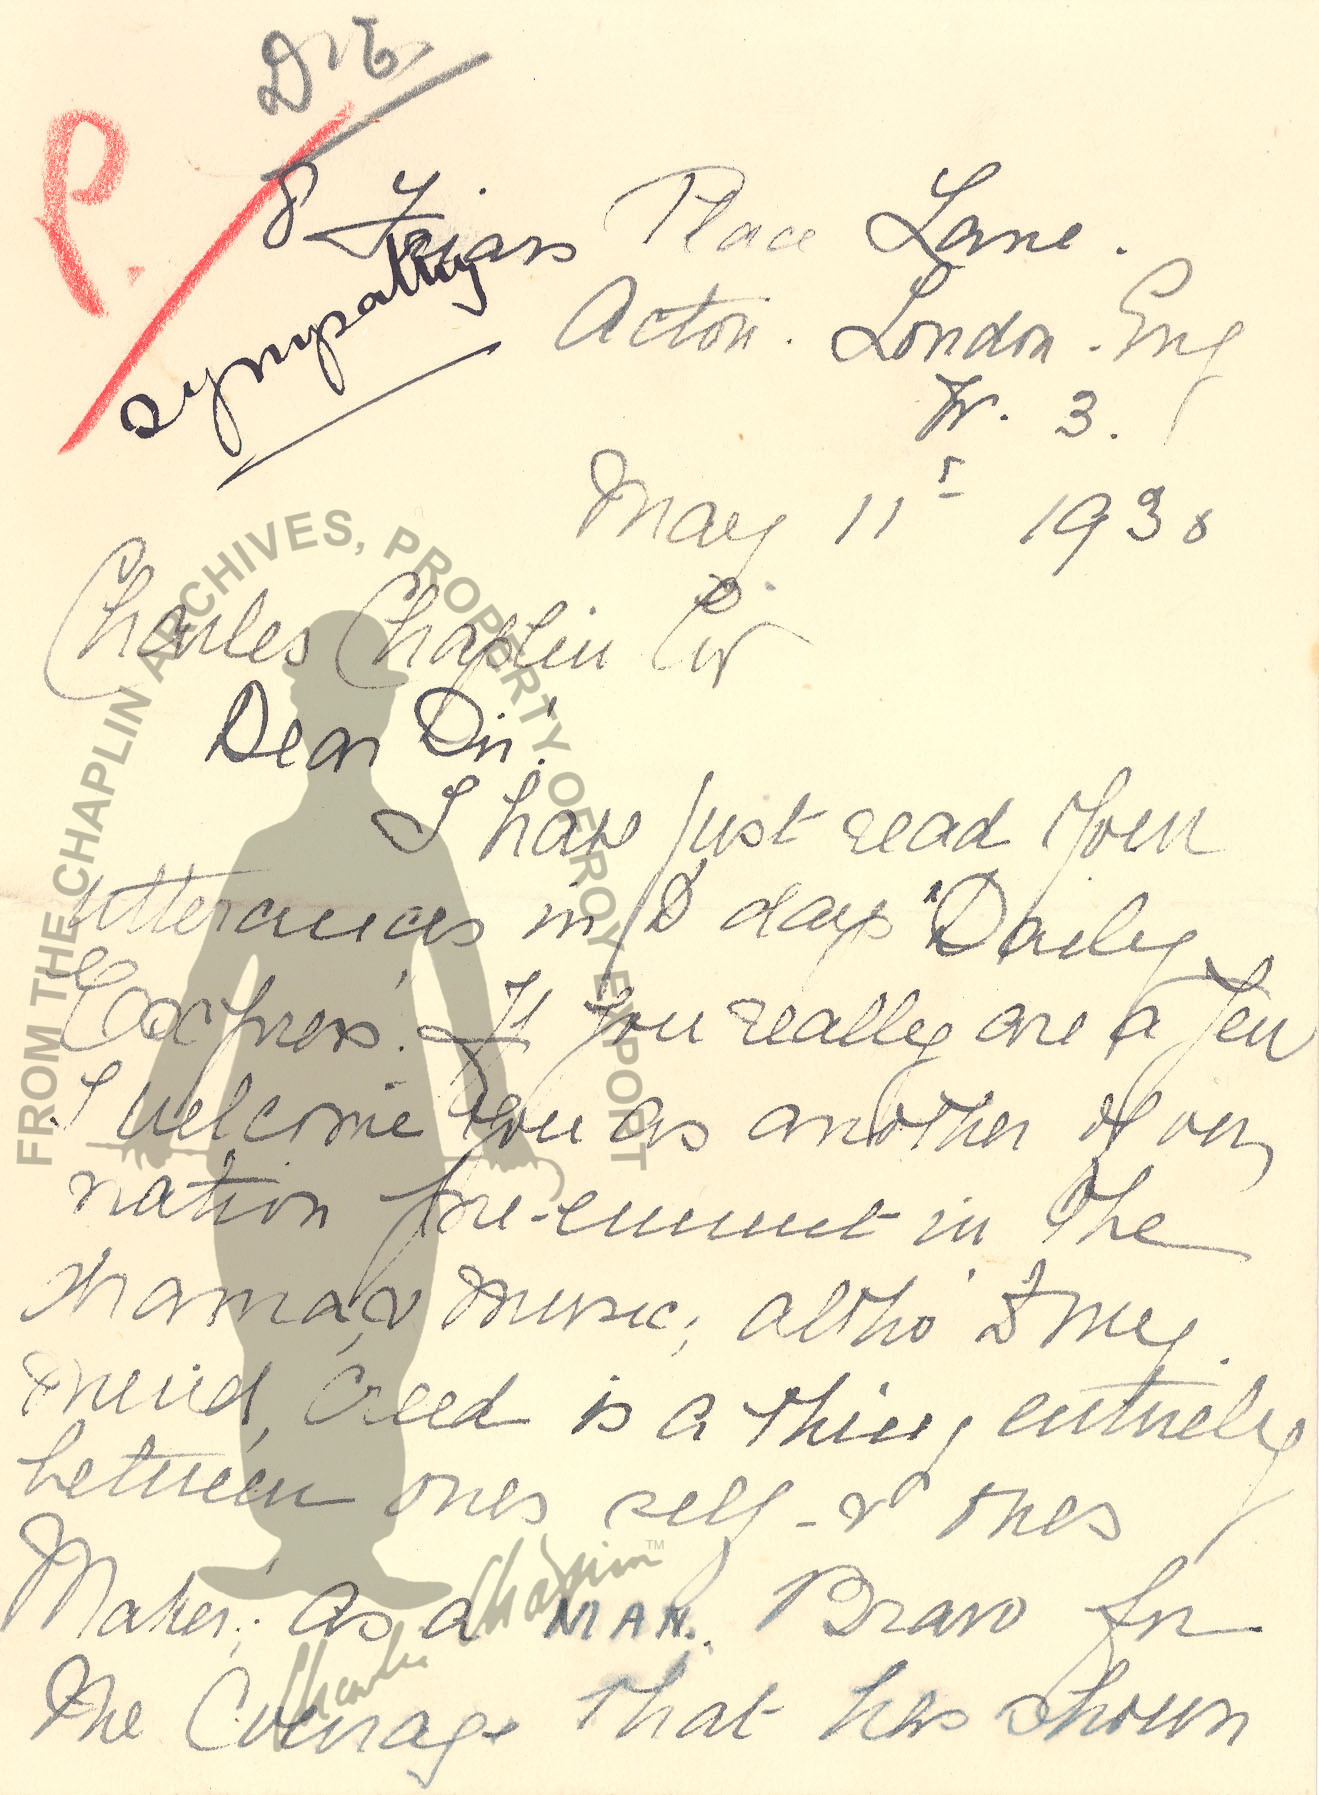 P.
sympathy
8 Friars Place Lane.
Acton. London. Eng
W. 3.
May 11 1931
Charles Chaplin
Dear Sir.
I have just read your
utterances in to days "Daily
Express". If you really are a Jew
I welcome you as another of our
nation pre-eminent in the
drama, & music; altho' to my
mind, creed is a thing entirely
between ones self - & ones
Maker; as a MAN. Bravo for
the Courage that has shown
FROM THE CHAPLIN ARCHIVES, PROPERTY OF ROY EXPORT
Charles Chaplin TM